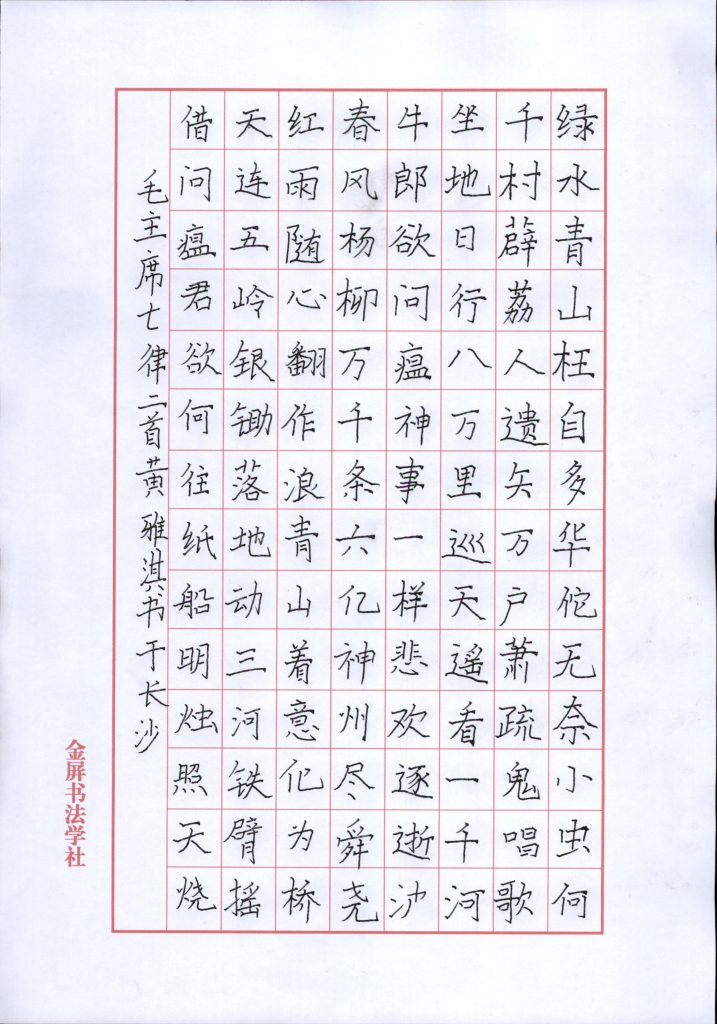 绿水青山枉自多华佗无奈小虫何
千村薜荔人遗矢万户萧疏鬼唱歌
坐地日行八万里巡天遥看一千河
牛郎欲问瘟神事一样悲欢逐逝波
春风杨柳万千条六亿神州尽舜尧
红雨随心翻作浪青山着意化为桥
天连五岭银锄落地动三河铁臂摇
借问瘟君欲何往纸船明烛照天烧
毛主席七律二首黄雅淇书于长沙
金屏书法学社